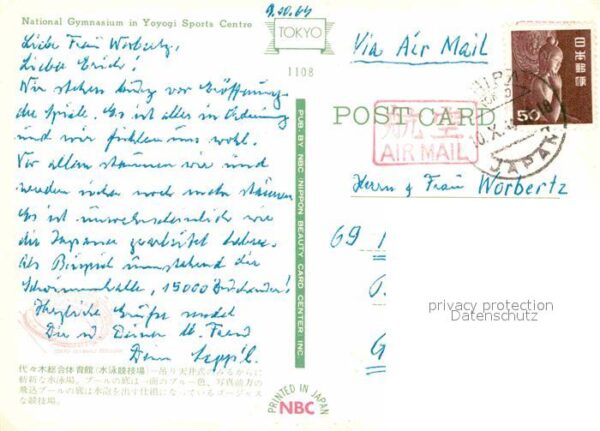 National Gymnasium in Yoyogi Sports Centre
9.10.64
TOKYO
1108
Liebe Frau Worbertz,
Lieber Erich!
Wir stehen kurz vor Eröffnung
der Spiele. Es ist alles in Ordnung
und wir fühlen uns wohl.
Vor allem staunen wir und
werden noch mehr staunen
Es ist unwahrscheinlich wie
die Japaner gearbeitet haben.
Als Beispiel umstehend die
Schwimmhalle, 15000 Zuschauer!
Herzliche Grüße
Dir u. Deiner lb. Frau
Dein Seppl.
代々木総合体育館(水泳競技場)―吊り天井式のみるからに
斬新な水泳場。プールの底は一面のブルー色、写真前方の
飛込プールの底は水泡を出す仕組になっているゴージャス
な競技場。
PUB. BY NBC (NIPPON BEAUTY CARD CENTER INC.
PRINTED IN JAPAN
NBC
Via Air Mail
POST CARD
航空
AIR MAIL
日本郵便
50
JAPAN
Herrn & Frau Worbertz
69
G
privacy protection
Datenschutz